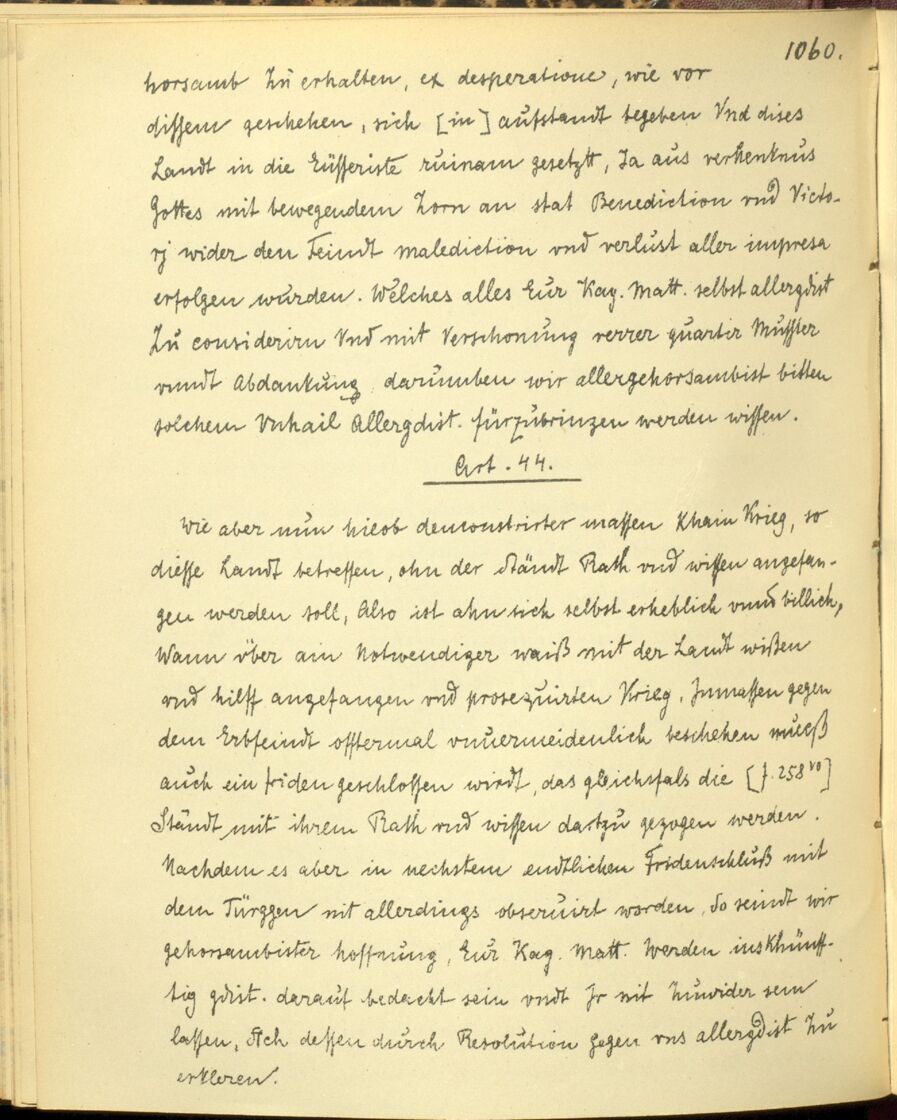 1060.
horsamb Zu erhalten, ex desperatione, wie vor
dissem geschehen, sich [in] aufstandt begeben Vnd dises
Landt in die Eüsseriste ruinam gesetzt, Ja aus verhenknus
Gottes mit bewegendem Zorn an stat Benediction vnd Victo-
rj wider den Feindt malediction vnd verlust aller impresa
erfolgen wurden. Welches alles Eur Kay. Matt. selbst allergdist
Zu considerirn Vnd mit Verschonung rerrer quartir Musster
vnndt Abdankung darumben wir allergehorsambist bitten
solchem Vnhail Allergdist. fürzubringen werden wissen.
Art. 44.
Wie aber nun hieob demonstrirter massen Khain Krieg, so
diesse Landt betreffen, ohn der Ständt Rath vnd wissen angefan-
gen werden soll, Also ist ahn sich selbst erheblich vnnd billich,
Wann über ain Notwendiger waiß mit der Landt wißen
vnd hilff angefangen vnd prosequirten Krieg, Inmassen gegen
dem Erbfeindt offtermal vnuermeidenlich beschehen mueß
auch ein friden geschlossen wirdt, das gleichsfals die [f. 258 vo]
Ständt mit ihrem Rath vnd wissen dartzu gezogen werden.
Nachdem es aber in nechstem endtlichen Fridenschluß mit
dem Türggen nit allerdings obseruirt worden, So seindt wir
gehorsambister hoffnung, Eur Kay. Matt. Werden insKhünff-
tig gdist. darauf bedacht sein vndt Ir nit Zuwider sein
lassen, Sich dessen durch Resolution gegen vns allergdist Zu
erkleren.